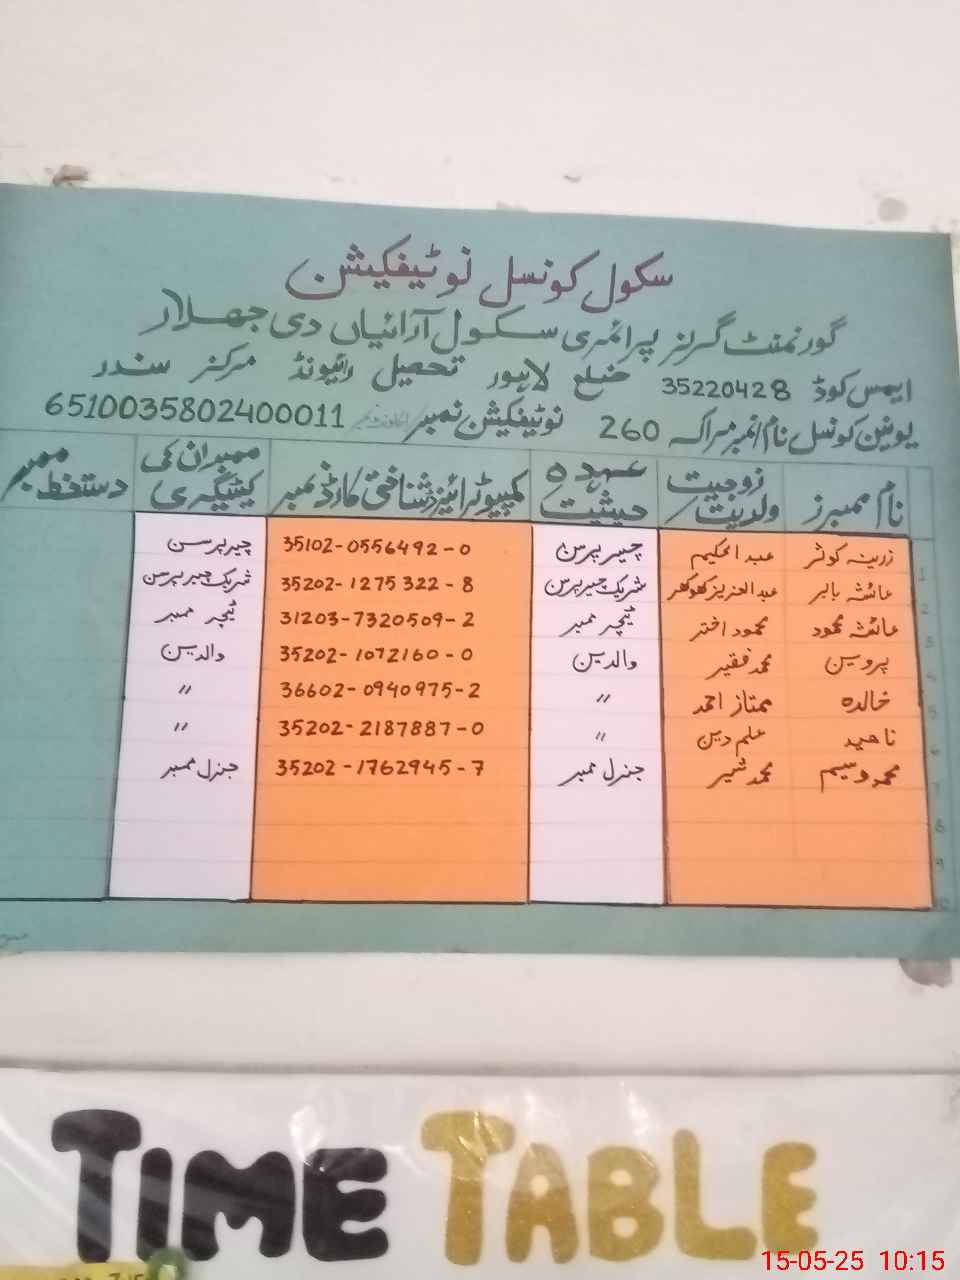 سکول کونسل نوٹیفکیشن
گورنمنٹ گرلز پرائمری سکول آرائیاں دی جھلار
ایمس کوڈ 35220428 ضلع لاہور تحصیل رائیونڈ مرکز سندر
یونین کونسل نام/نمبر مراکہ 260 نوٹیفکیشن نمبر 6510035802400011
نام ممبرز زوجیت ولدیت عہدہ حیثیت کمپیوٹرائیزڈ شناختی کارڈ نمبر ممبران کی کیٹیگری دستخط ممبر
1 زرینہ کوثر عبدالحکیم چیئرپرسن 35102-0556492-0 چیئرپرسن
2 عائشہ بابر عبدالعزیز کھوکھر شریک چیئرپرسن 35202-1275322-8 شریک چیئرپرسن
3 عائشہ محمود محمود اختر ٹیچر ممبر 31203-7320509-2 ٹیچر ممبر
4 پروین محمد فقیر والدین 35202-1072160-0 والدین
5 خالدہ ممتاز احمد " 36602-0940975-2 "
6 ناہید علم دین " 35202-2187887-0 "
7 محمد وسیم محمد شمیر جنرل ممبر 35202-1762945-7 جنرل ممبر
8
9
10
TIME TABLE
15-05-25 10:15